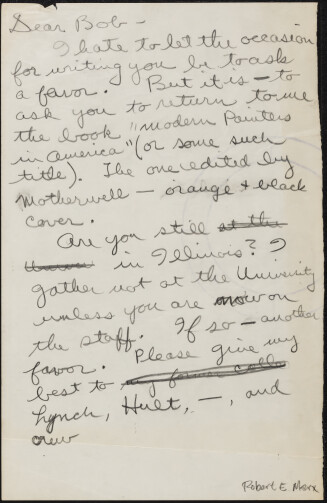 Dear Bob -
I hate to let the occasion
for writing you be to ask
a favor. But it is - to
ask you to return to me
the book "modern Painters
in America" (or some such
title). The one edited by
Motherwell - orange & black
cover.
Are you still at the
in Illinois? I
gather not at the University
unless you are now on
the staff. If so - another
favor. Please give my
best to my former colle
Lynch, Hult, -, and
crew
Robert E. Marx